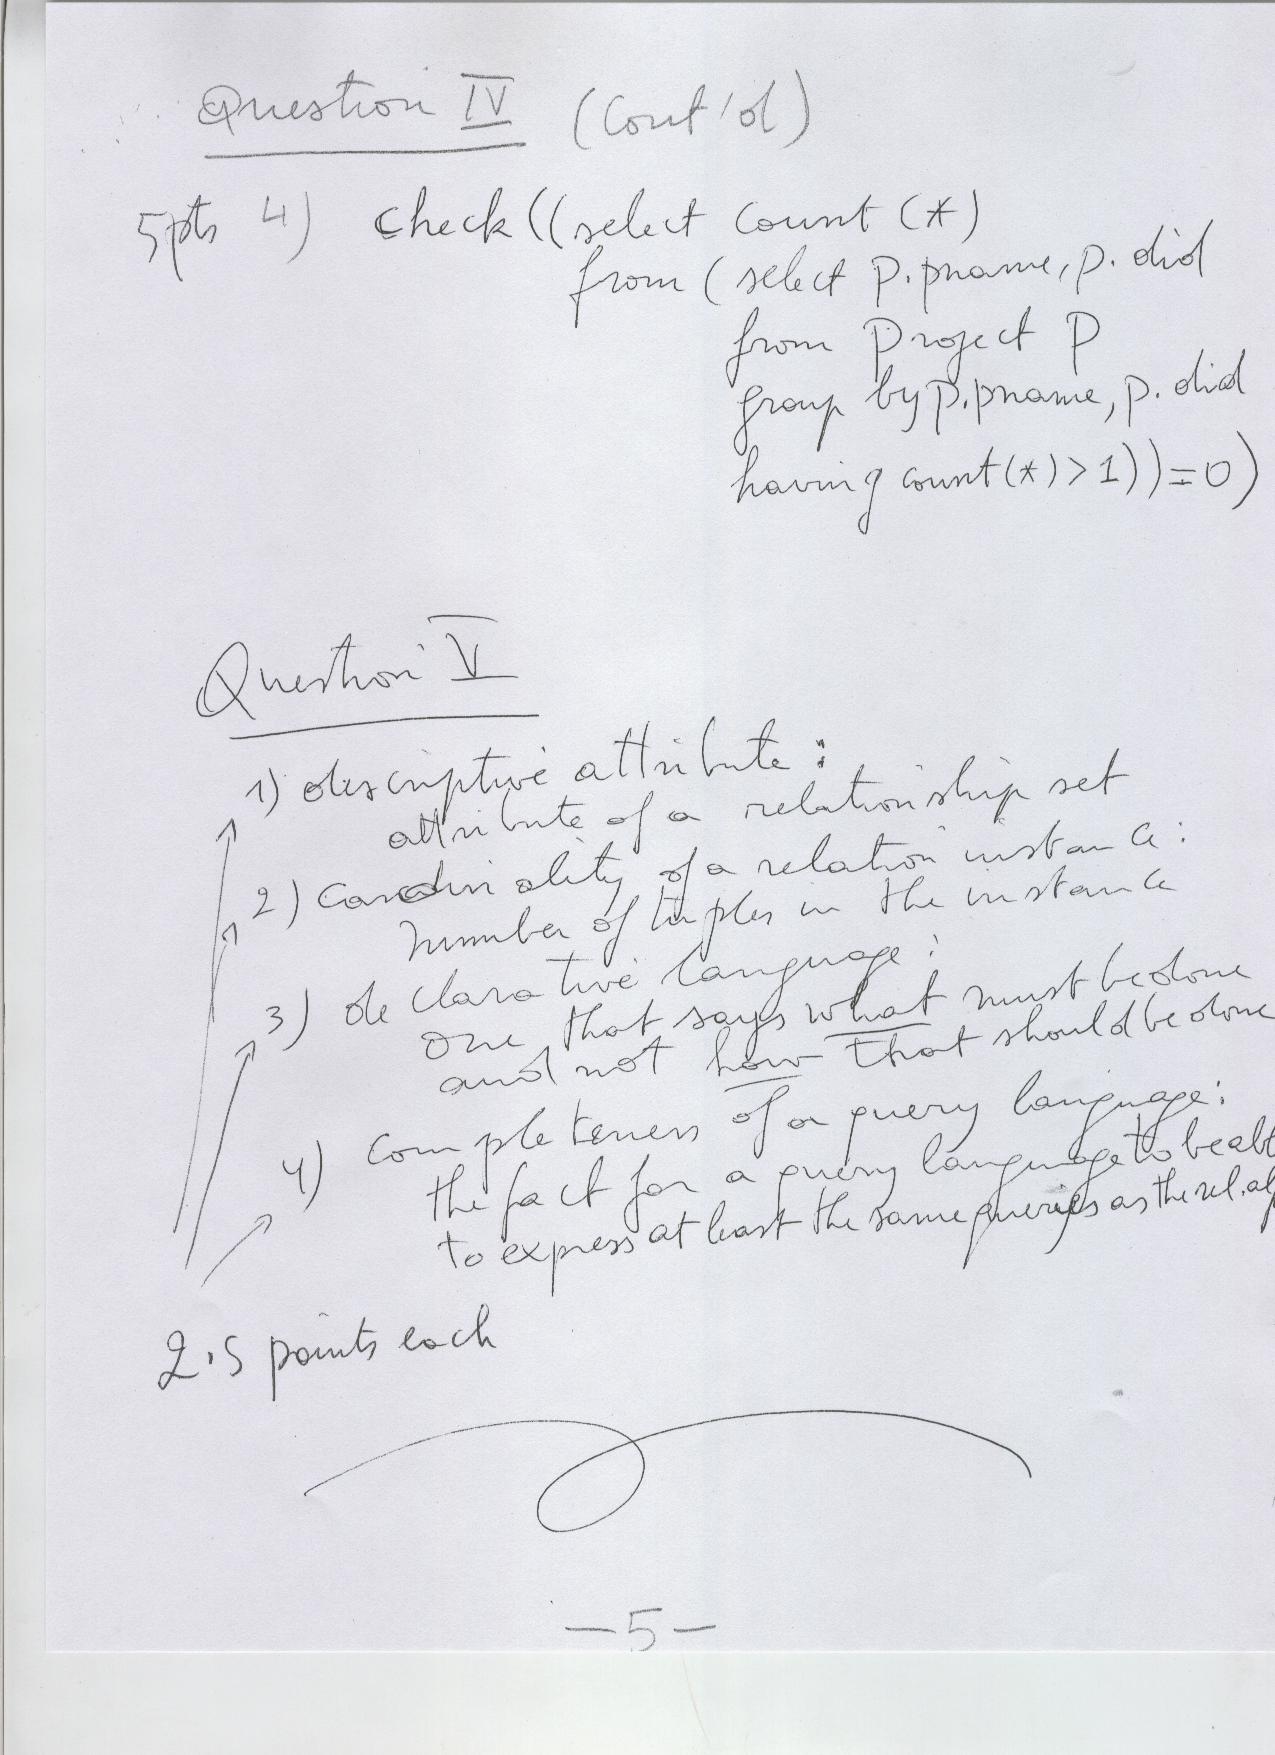 Question IV (Cont'd)
5pts 4) check((select count(*)
from (select P.pname, P.did
from Project P
group by P.pname, P.did
having count(*) > 1)) = 0)
Question V
1) descriptive attribute:
attribute of a relationship set
2) cardinality of a relation instance:
number of tuples in the instance
3) declarative language:
one that says what must be done
and not how that should be done
4) completeness of a query language:
the fact for a query language to be abl
to express at least the same queries as the rel. alg
2.5 points each
-5-